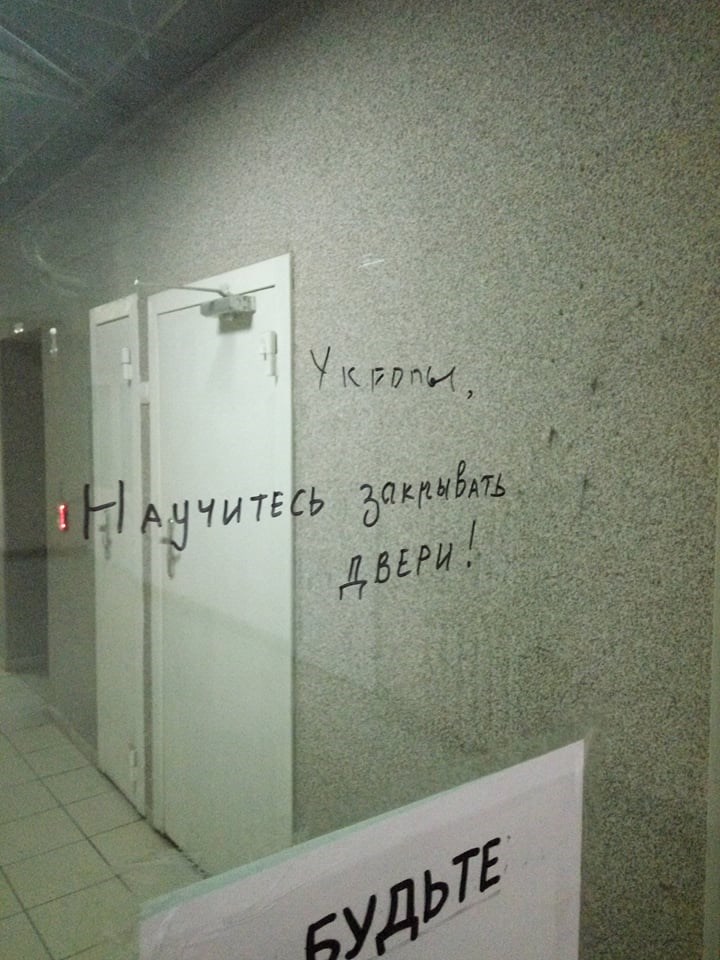 Укропы,
Научитесь закрывать
двери!
БУДЬТЕ